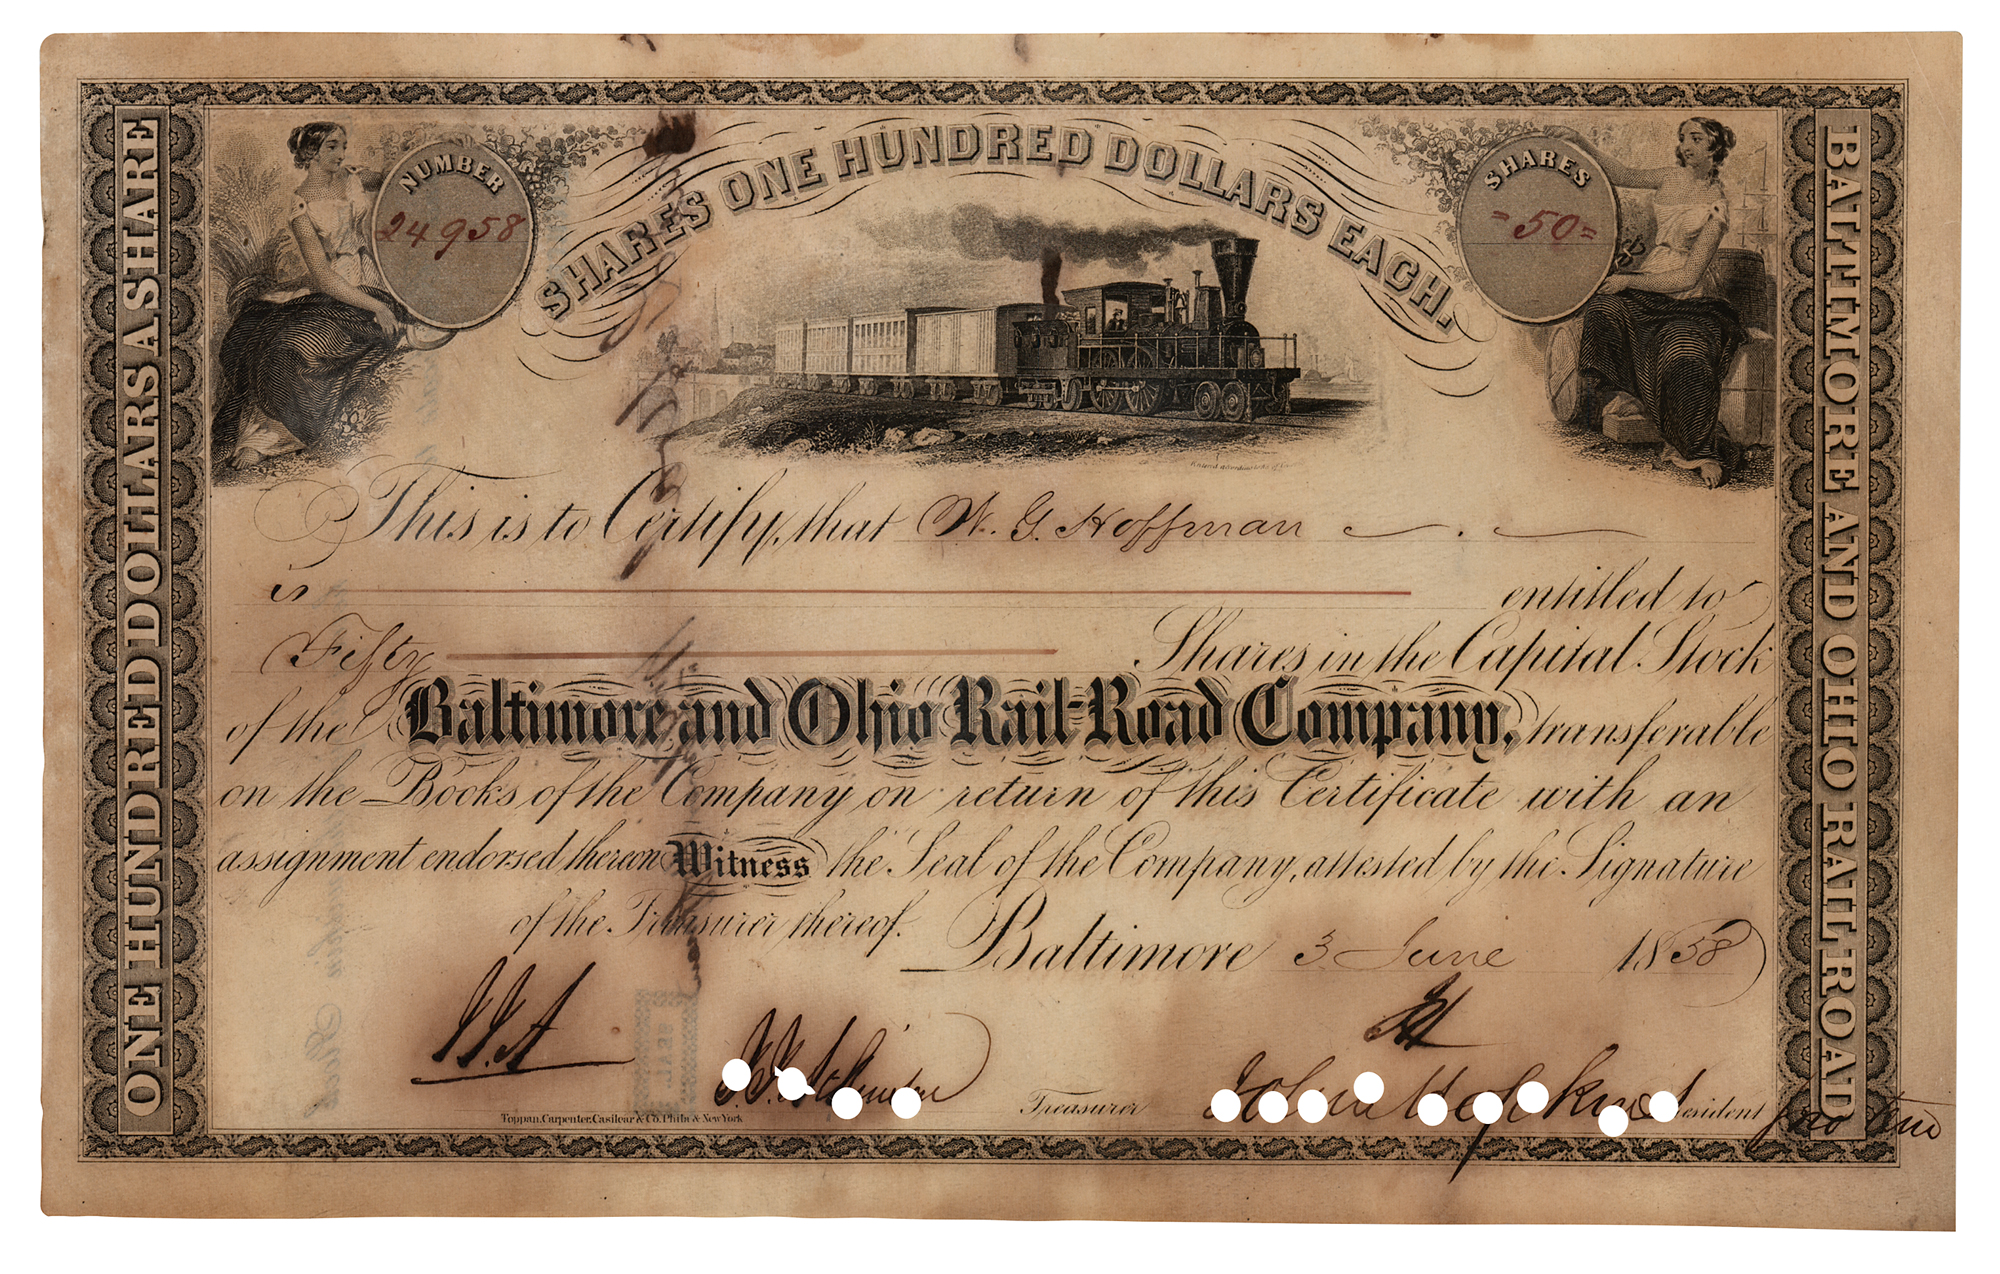 SHARES ONE HUNDRED DOLLARS EACH.
NUMBER
24958
SHARES
=50=
ONE HUNDRED DOLLARS A SHARE
BALTIMORE AND OHIO RAILROAD
This is to Certify, that W. G. Hoffman
is entitled to
Fifty Shares in the Capital Stock
of the Baltimore and Ohio Rail-Road Company, transferable
on the Books of the Company on return of this Certificate with an
assignment endorsed thereon Witness the Seal of the Company, attested by the Signature
of the Treasurer thereof.
Baltimore 3 June 1858
Treasurer
Toppan, Carpenter, Casilear & Co. Phila & New York